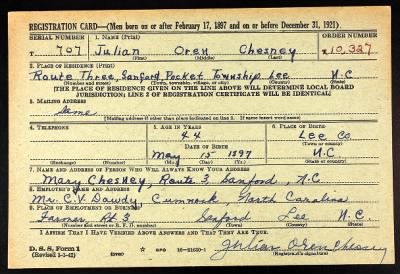 REGISTRATION CARD—(Men born on or after February 17, 1897 and on or before December 31, 1921)
SERIAL NUMBER 1. NAME (Print) ORDER NUMBER
T 707 Julian Oren Chesney 10,327
(First) (Middle) (Last)
2. PLACE OF RESIDENCE (Print)
Route Three, Sanford, Pocket Township Lee N.C
(Number and street) (Town, township, village, or city) (County) (State)
[THE PLACE OF RESIDENCE GIVEN ON THE LINE ABOVE WILL DETERMINE LOCAL BOARD
JURISDICTION; LINE 2 OF REGISTRATION CERTIFICATE WILL BE IDENTICAL]
3. MAILING ADDRESS
Same
[Mailing address if other than place indicated on line 2. If same insert word same]
4. TELEPHONE 5. AGE IN YEARS 6. PLACE OF BIRTH
44 Lee Co.
DATE OF BIRTH (Town or county)
May 15 1897 N.C.
(Exchange) (Number) (Mo.) (Day) (Yr.) (State or country)
7. NAME AND ADDRESS OF PERSON WHO WILL ALWAYS KNOW YOUR ADDRESS
Mary Chesney, Route 3, Sanford, N.C.
8. EMPLOYER'S NAME AND ADDRESS
Mr. C.V. Dowdy, Cumnock, North Carolina
9. PLACE OF EMPLOYMENT OR BUSINESS
Farmer, Rt. 3 Sanford Lee N.C.
(Number and street or R. F. D. number) (Town) (County) (State)
I AFFIRM THAT I HAVE VERIFIED ABOVE ANSWERS AND THAT THEY ARE TRUE.
D. S. S. Form 1
(Revised 1-1-42) GPO 16-21630-1 Julian Oren Chesney
(Registrant's signature)